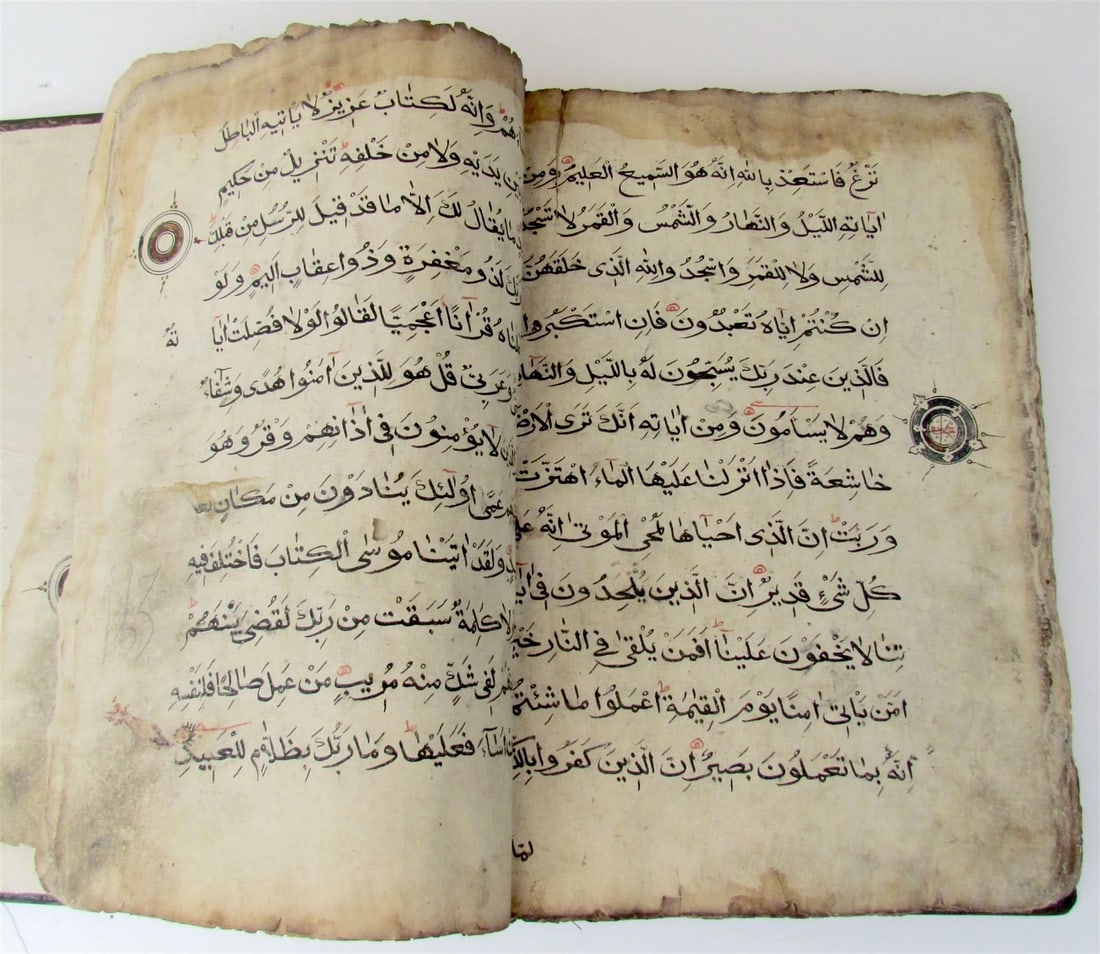 نَزْغٌ فَاسْتَعِذْ بِاللهِ اِنَّهُ هُوَ السَّمِيعُ الْعَلِيمُ وَمِنْ
اٰيَاتِهِ اللَّيْلُ وَالنَّهَارُ وَالشَّمْسُ وَالْقَمَرُ لَا تَسْجُدُ
لِلشَّمْسِ وَلَا لِلْقَمَرِ وَاسْجُدُوا لِلّٰهِ الَّذِى خَلَقَهُنَّ
اِنْ كُنْتُمْ اِيَّاهُ تَعْبُدُونَ فَاِنِ اسْتَكْبَرُوا
فَالَّذِينَ عِنْدَ رَبِّكَ يُسَبِّحُونَ لَهُ بِاللَّيْلِ وَالنَّهَارِ
وَهُمْ لَا يَسْاَمُونَ وَمِنْ اٰيَاتِهِ اَنَّكَ تَرَى الْاَرْضَ
خَاشِعَةً فَاِذَا اَنْزَلْنَا عَلَيْهَا الْمَاءَ اهْتَزَّتْ
وَرَبَتْ اِنَّ الَّذِى اَحْيَاهَا لَمُحْىِ الْمَوْتٰى اِنَّهُ عَلٰى
كُلِّ شَىْءٍ قَدِيرٌ اِنَّ الَّذِينَ يُلْحِدُونَ فِى اٰيَا
تِنَا لَا يَخْفَوْنَ عَلَيْنَا اَفَمَنْ يُلْقٰى فِى النَّارِ خَيْرٌ
اَمْ مَنْ يَاْتِى اٰمِنًا يَوْمَ الْقِيٰمَةِ اعْمَلُوا مَا شِئْتُمْ
اِنَّهُ بِمَا تَعْمَلُونَ بَصِيرٌ اِنَّ الَّذِينَ كَفَرُوا بِالذِّ
لمّا
وَاِنَّهُ لَكِتَابٌ عَزِيزٌ لَا يَاْتِيهِ الْبَاطِلُ
يَدَيْهِ وَلَا مِنْ خَلْفِهِ تَنْزِيلٌ مِنْ حَكِيمٍ
مَا يُقَالُ لَكَ اِلَّا مَا قَدْ قِيلَ لِلرُّسُلِ مِنْ قَبْلِكَ
لَذُو مَغْفِرَةٍ وَذُوا عِقَابٍ اَلِيمٍ وَلَوْ
قُرْاٰنًا اَعْجَمِيًّا لَقَالُوا لَوْلَا فُصِّلَتْ اٰيَا
تُهُ
وَعَرَبِىٌّ قُلْ هُوَ لِلَّذِينَ اٰمَنُوا هُدًى وَشِفَاءٌ
لَا يُؤْمِنُونَ فِى اٰذَانِهِمْ وَقْرٌ وَهُوَ
عَمًى اُولٰئِكَ يُنَادَوْنَ مِنْ مَكَانٍ
وَلَقَدْ اٰتَيْنَا مُوسَى الْكِتَابَ فَاخْتُلِفَ فِيهِ
كَلِمَةٌ سَبَقَتْ مِنْ رَبِّكَ لَقُضِىَ بَيْنَهُمْ
لَفِى شَكٍّ مِنْهُ مُرِيبٍ مَنْ عَمِلَ صَالِحًا فَلِنَفْسِهِ
اَسَاءَ فَعَلَيْهَا وَمَا رَبُّكَ بِظَلَّامٍ لِلْعَبِيدِ